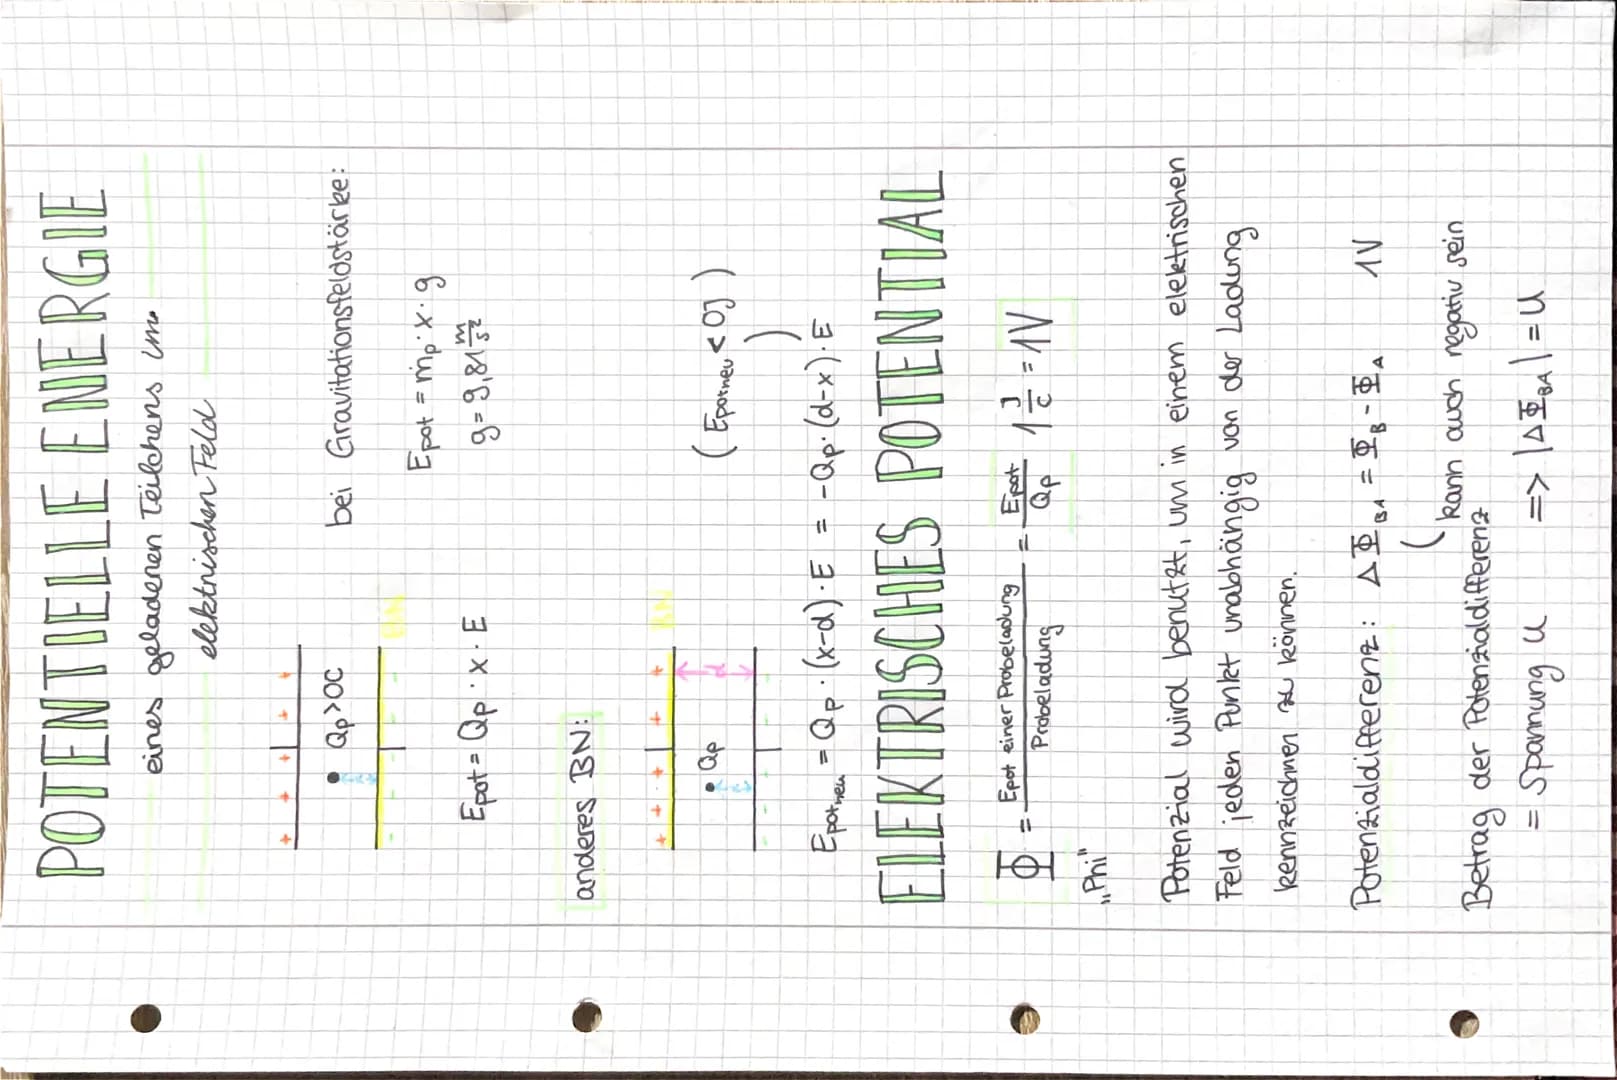 POTENTIELLE ENERGIE
eines geladenen Teilchens im
elektrischen Feld
+ + + + +
Qp>0C
- - - - -
BN
bei Gravitationsfeldstärke:
Epot = mp · x · g
g = 9,81 m/s²
Epot = Qp · x · E
anderes BN:
+ + + + +
BN
Qp
d
- - - - -
(Epotneu < 0J)
Epotneu = Qp · (x-d) · E = -Qp · (d-x) · E
ELEKTRISCHES POTENTIAL
Φ = Epot einer Probeladung / Probeladung = Epot / Qp 1 J/C = 1V
„Phi"
Potenzial wird benutzt, um in einem elektrischen
Feld jeden Punkt unabhängig von der Ladung
kennzeichnen zu können.
Potenzialdifferenz: ΔΦBA = ΦB - ΦA 1V
( kann auch negativ sein
Betrag der Potenzialdifferenz
= Spannung U => |ΔΦBA| = U